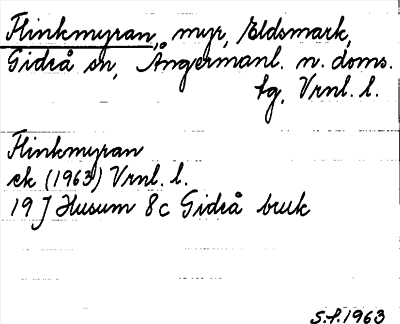 Flinkmyran, myr, Eldsmark,
Gideå sn, Ångermanl. n. doms.
tg, Vrnl. l.
Flinkmyran
ek (1963) Vrnl. l.
19 J Husum 8c Gideå bruk
S.f. 1963